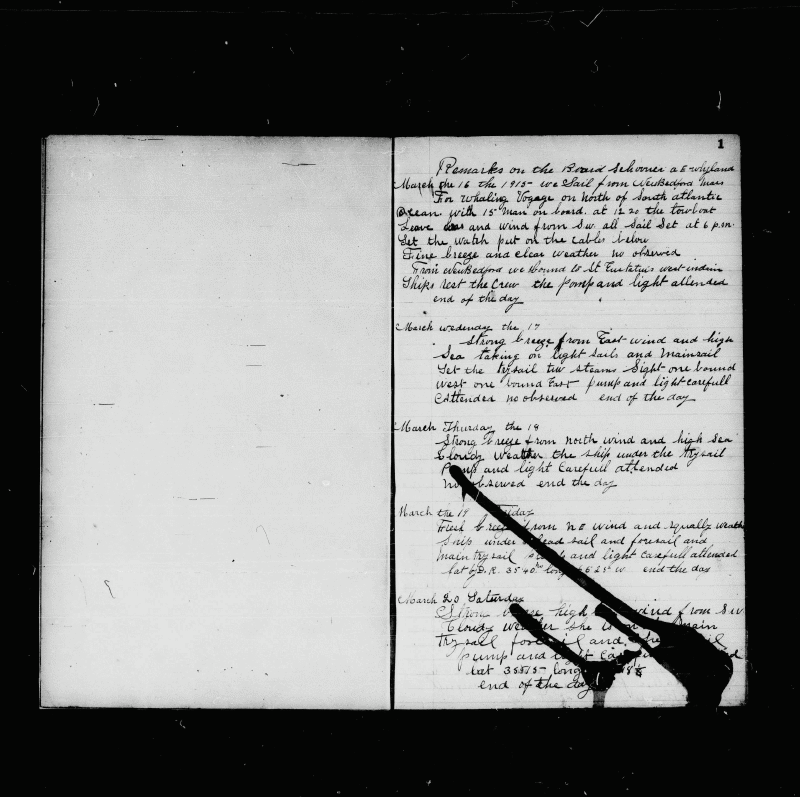 1
Remarks on the Board Schooner A E whyland
March the 16 the 1915 we Sail from NewBedford Mass
For whaling Voyage on North of South atlantic
Ocean with 15 man on board. at 12 20 the towboat
Leave and wind from S.w. all Sail Set at 6 p.m.
Set the watch put on the Cables below
Fine breeze and clear weather no observed
From NewBedford we bound to St Eustatius west indies
Ships rest the Crew the pump and light attended
end of the day
March wedenday the 17
Strong breeze from East wind and high
Sea taking on light sails and Mainsail
Set the trysail tow steams Sight one bound
west one bound East pump and light carefull
Attended no observed end of the day
March Thurday the 18
Strong breeze from north wind and high Sea
Cloudy weather the ship under the trysail
Pump and light Carefull attended
no observed end the day
March the 19 Friday
Fresh breeze from N E wind and squally weath
Ship under head sail and foresail and
main trysail and light carefull attended
Lat by D.R. 35 40 long w end the day
March 20 Saturday
Strong high wind from S w
Cloudy weather she main
trysail foresail and
pump and light
Lat long
end of the day